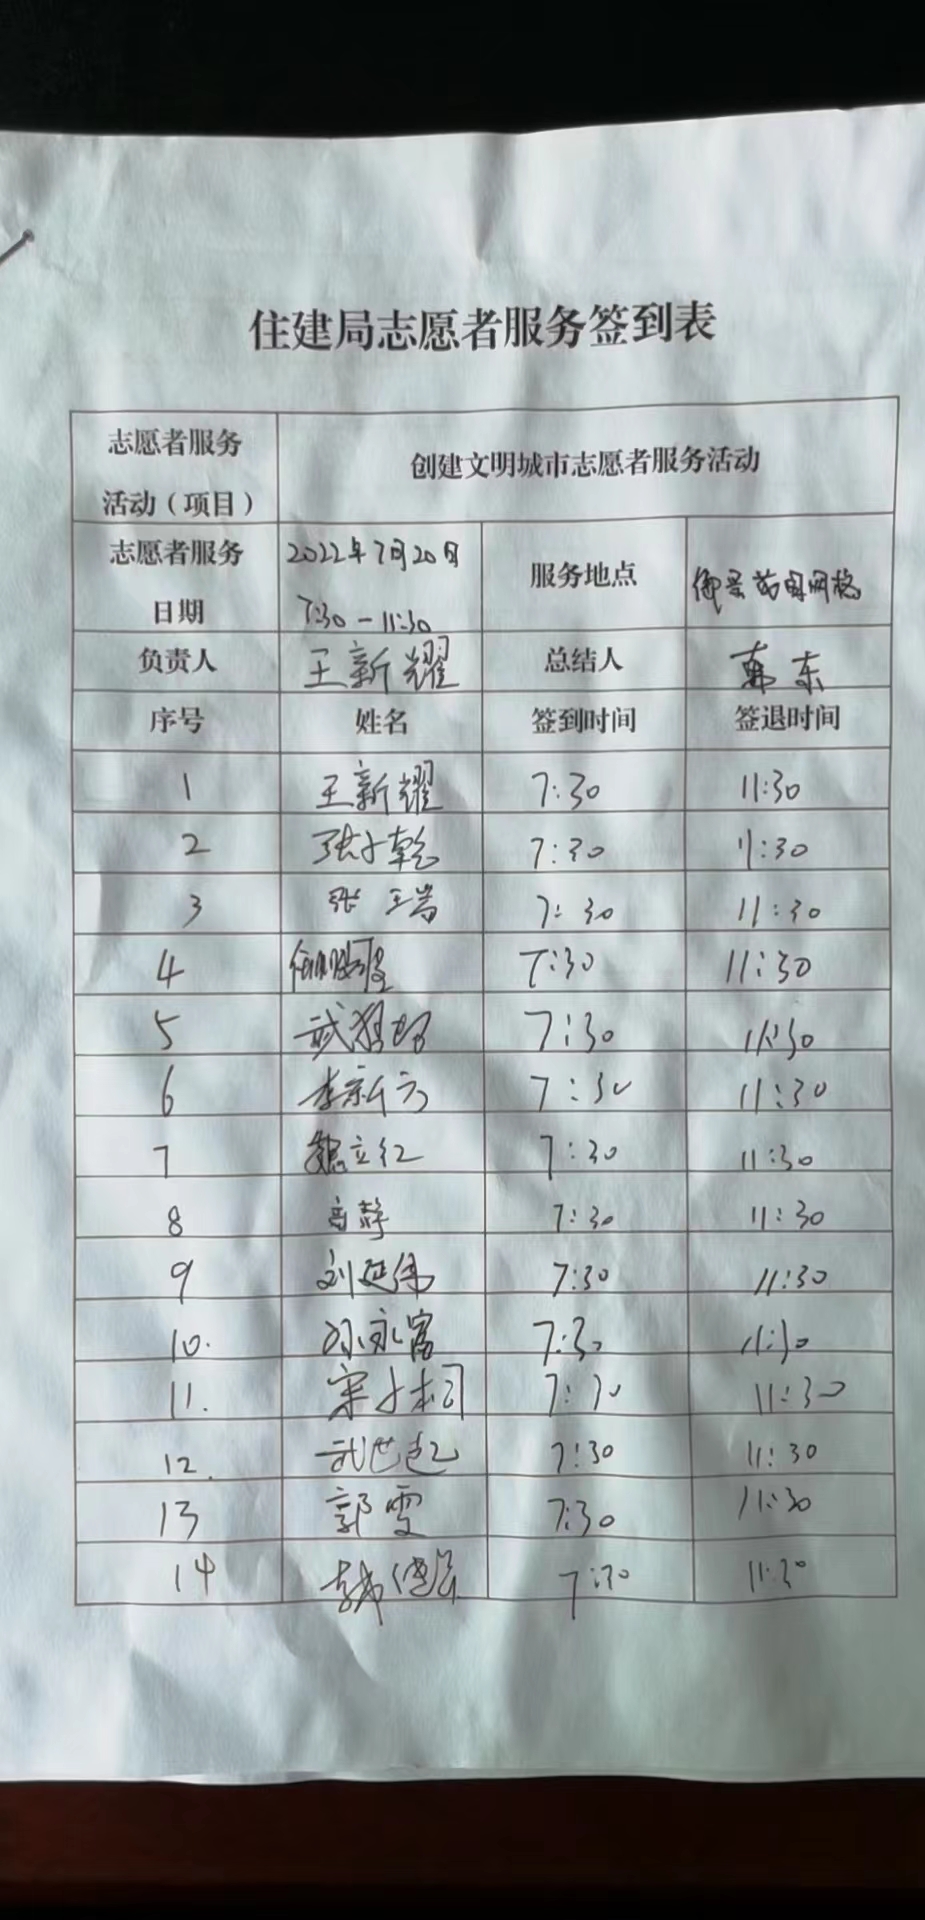 住建局志愿者服务签到表
志愿者服务 活动（项目） 创建文明城市志愿者服务活动
志愿者服务 日期 2022年7月20日 7:30-11:30 服务地点 御景苑网格
负责人 王新耀 总结人 韩东
序号 姓名 签到时间 签退时间
1 王新耀 7:30 11:30
2 张子乾 7:30 11:30
3 张瑞 7:30 11:30
4 7:30 11:30
5 武 7:30 11:30
6 李新方 7:30 11:30
7 魏立红 7:30 11:30
8 高静 7:30 11:30
9 刘延伟 7:30 11:30
10. 孙永富 7:30 11:30
11. 宋子桐 7:30 11:30
12. 武世超 7:30 11:30
13 郭雯 7:30 11:30
14 韩 7:30 11:30